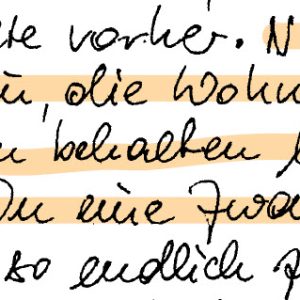 te vorher. N
u, die Wohn
n behalten
Du eine Zwa
so endlich